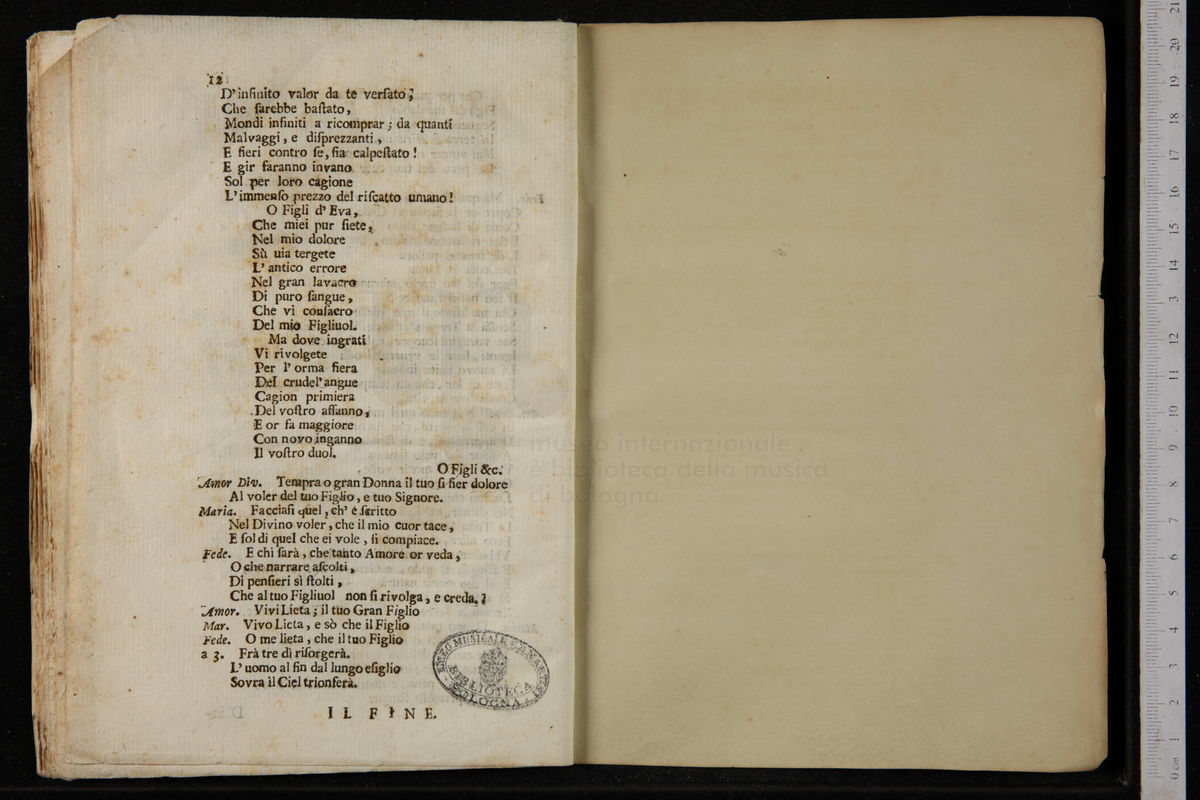 12
D'infinito valor da te versato;
Che sarebbe bastato,
Mondi infiniti a ricomprar; da quanti
Malvaggi, e disprezzanti,
E fieri contro se, sia calpestato!
E gir faranno invano
Sol per loro cagione
L'immenso prezzo del riscatto umano!
O Figli d'Eva,
Che miei pur siete,
Nel mio dolore
Sù uia tergete
L'antico errore
Nel gran lavacro
Di puro sangue,
Che vi consacro
Del mio Figliuol.
Ma dove ingrati
Vi rivolgete
Per l'orma fiera
Del crudel'angue
Cagion primiera
Del vostro affanno,
E or fa maggiore
Con novo inganno
Il vostro duol.
O Figli &c.
Amor Div. Tempra o gran Donna il tuo sì fier dolore
Al voler del tuo Figlio, e tuo Signore.
Maria. Facciasi quel, ch'è scritto
Nel Divino voler, che il mio cuor tace,
E sol di quel che ei vole, si compiace.
Fede. E chi sarà, che tanto Amore or veda,
O che narrare ascolti,
Di pensieri sì stolti,
Che al tuo Figliuol non si rivolga, e creda?
Amor. Vivi Lieta; il tuo Gran Figlio
Mar. Vivo Lieta, e sò che il Figlio
Fede. O me lieta, che il tuo Figlio
a 3. Frà tre dì risorgerà.
L'uomo al fin dal lungo esiglio
Sovra il Ciel trionferà.
IL FINE.
BIBLIOTECA
BOLOGNA
museo internazionale
e biblioteca della musica
di bologna